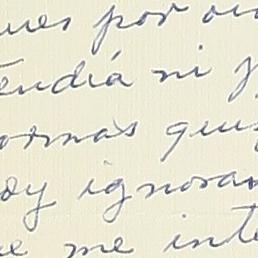 ues por
endía ni
ormas que
oy ignoran
me inte